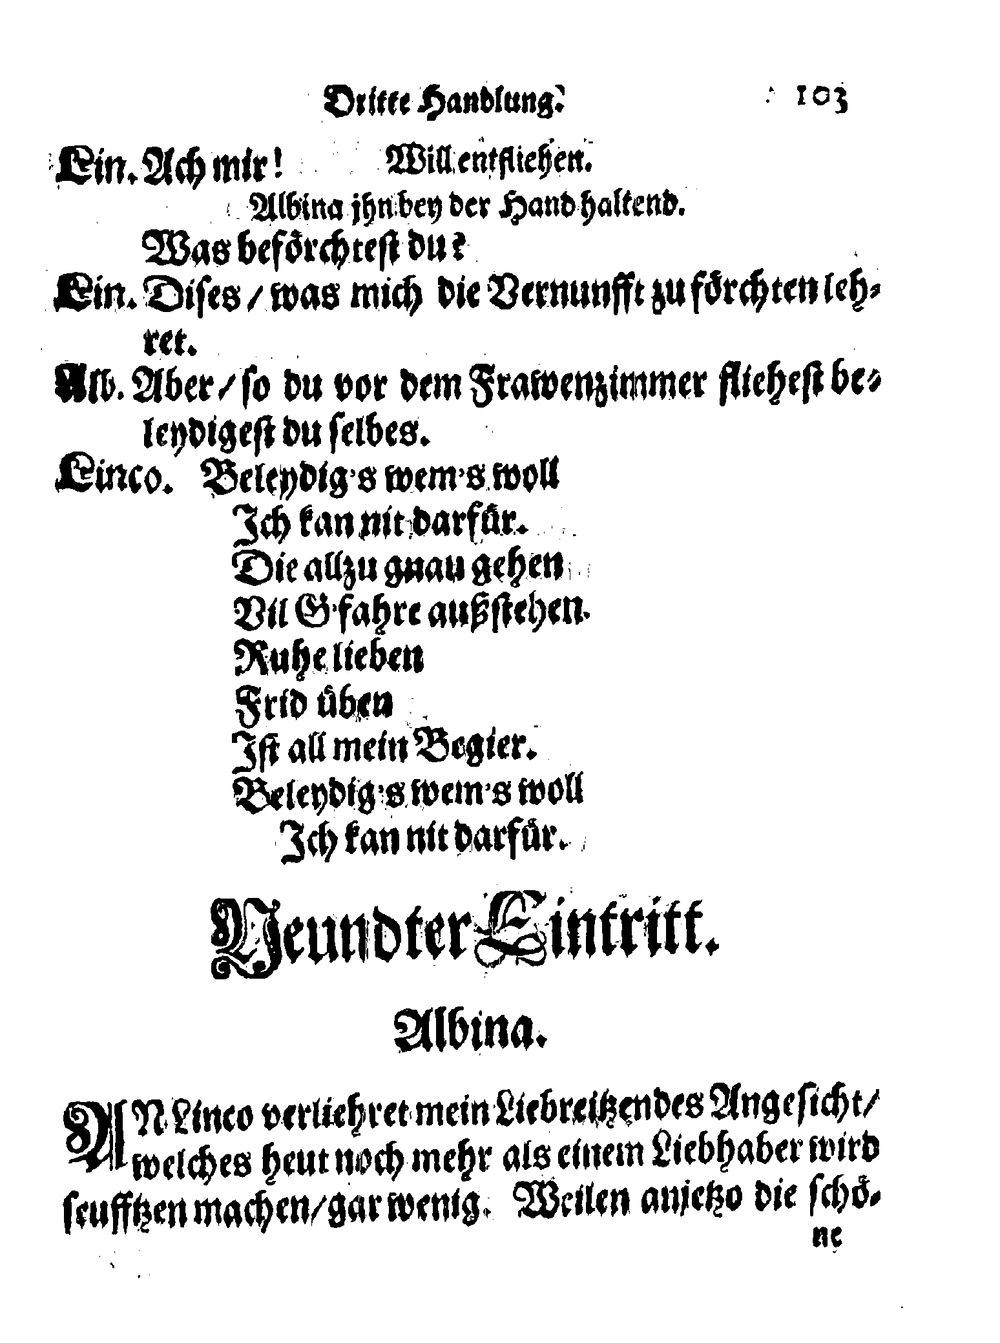 Dritte Handlung. 103
Lin. Ach mir! Will entfliehen.
Albina jhn bey der Hand haltend.
Was beförchtest du?
Lin. Dises / was mich die Vernunfft zu förchten leh-
ret.
Alb. Aber / so du vor dem Frawenzimmer fliehest be-
leydigest du selbes.
Linco. Beleydig's wem's woll
Ich kan nit darfür.
Die allzu gnau gehen
Vil G'fahre außstehen.
Ruhe lieben
Frid üben
Ist all mein Begier.
Beleydig's wem's woll
Ich kan nit darfür.
Neundter Eintritt.
Albina.
AN Linco verliehret mein Liebreitzendes Angesicht /
welches heut noch mehr als einem Liebhaber wird
seufftzen machen / gar wenig. Weilen anjetzo die schö-
ne